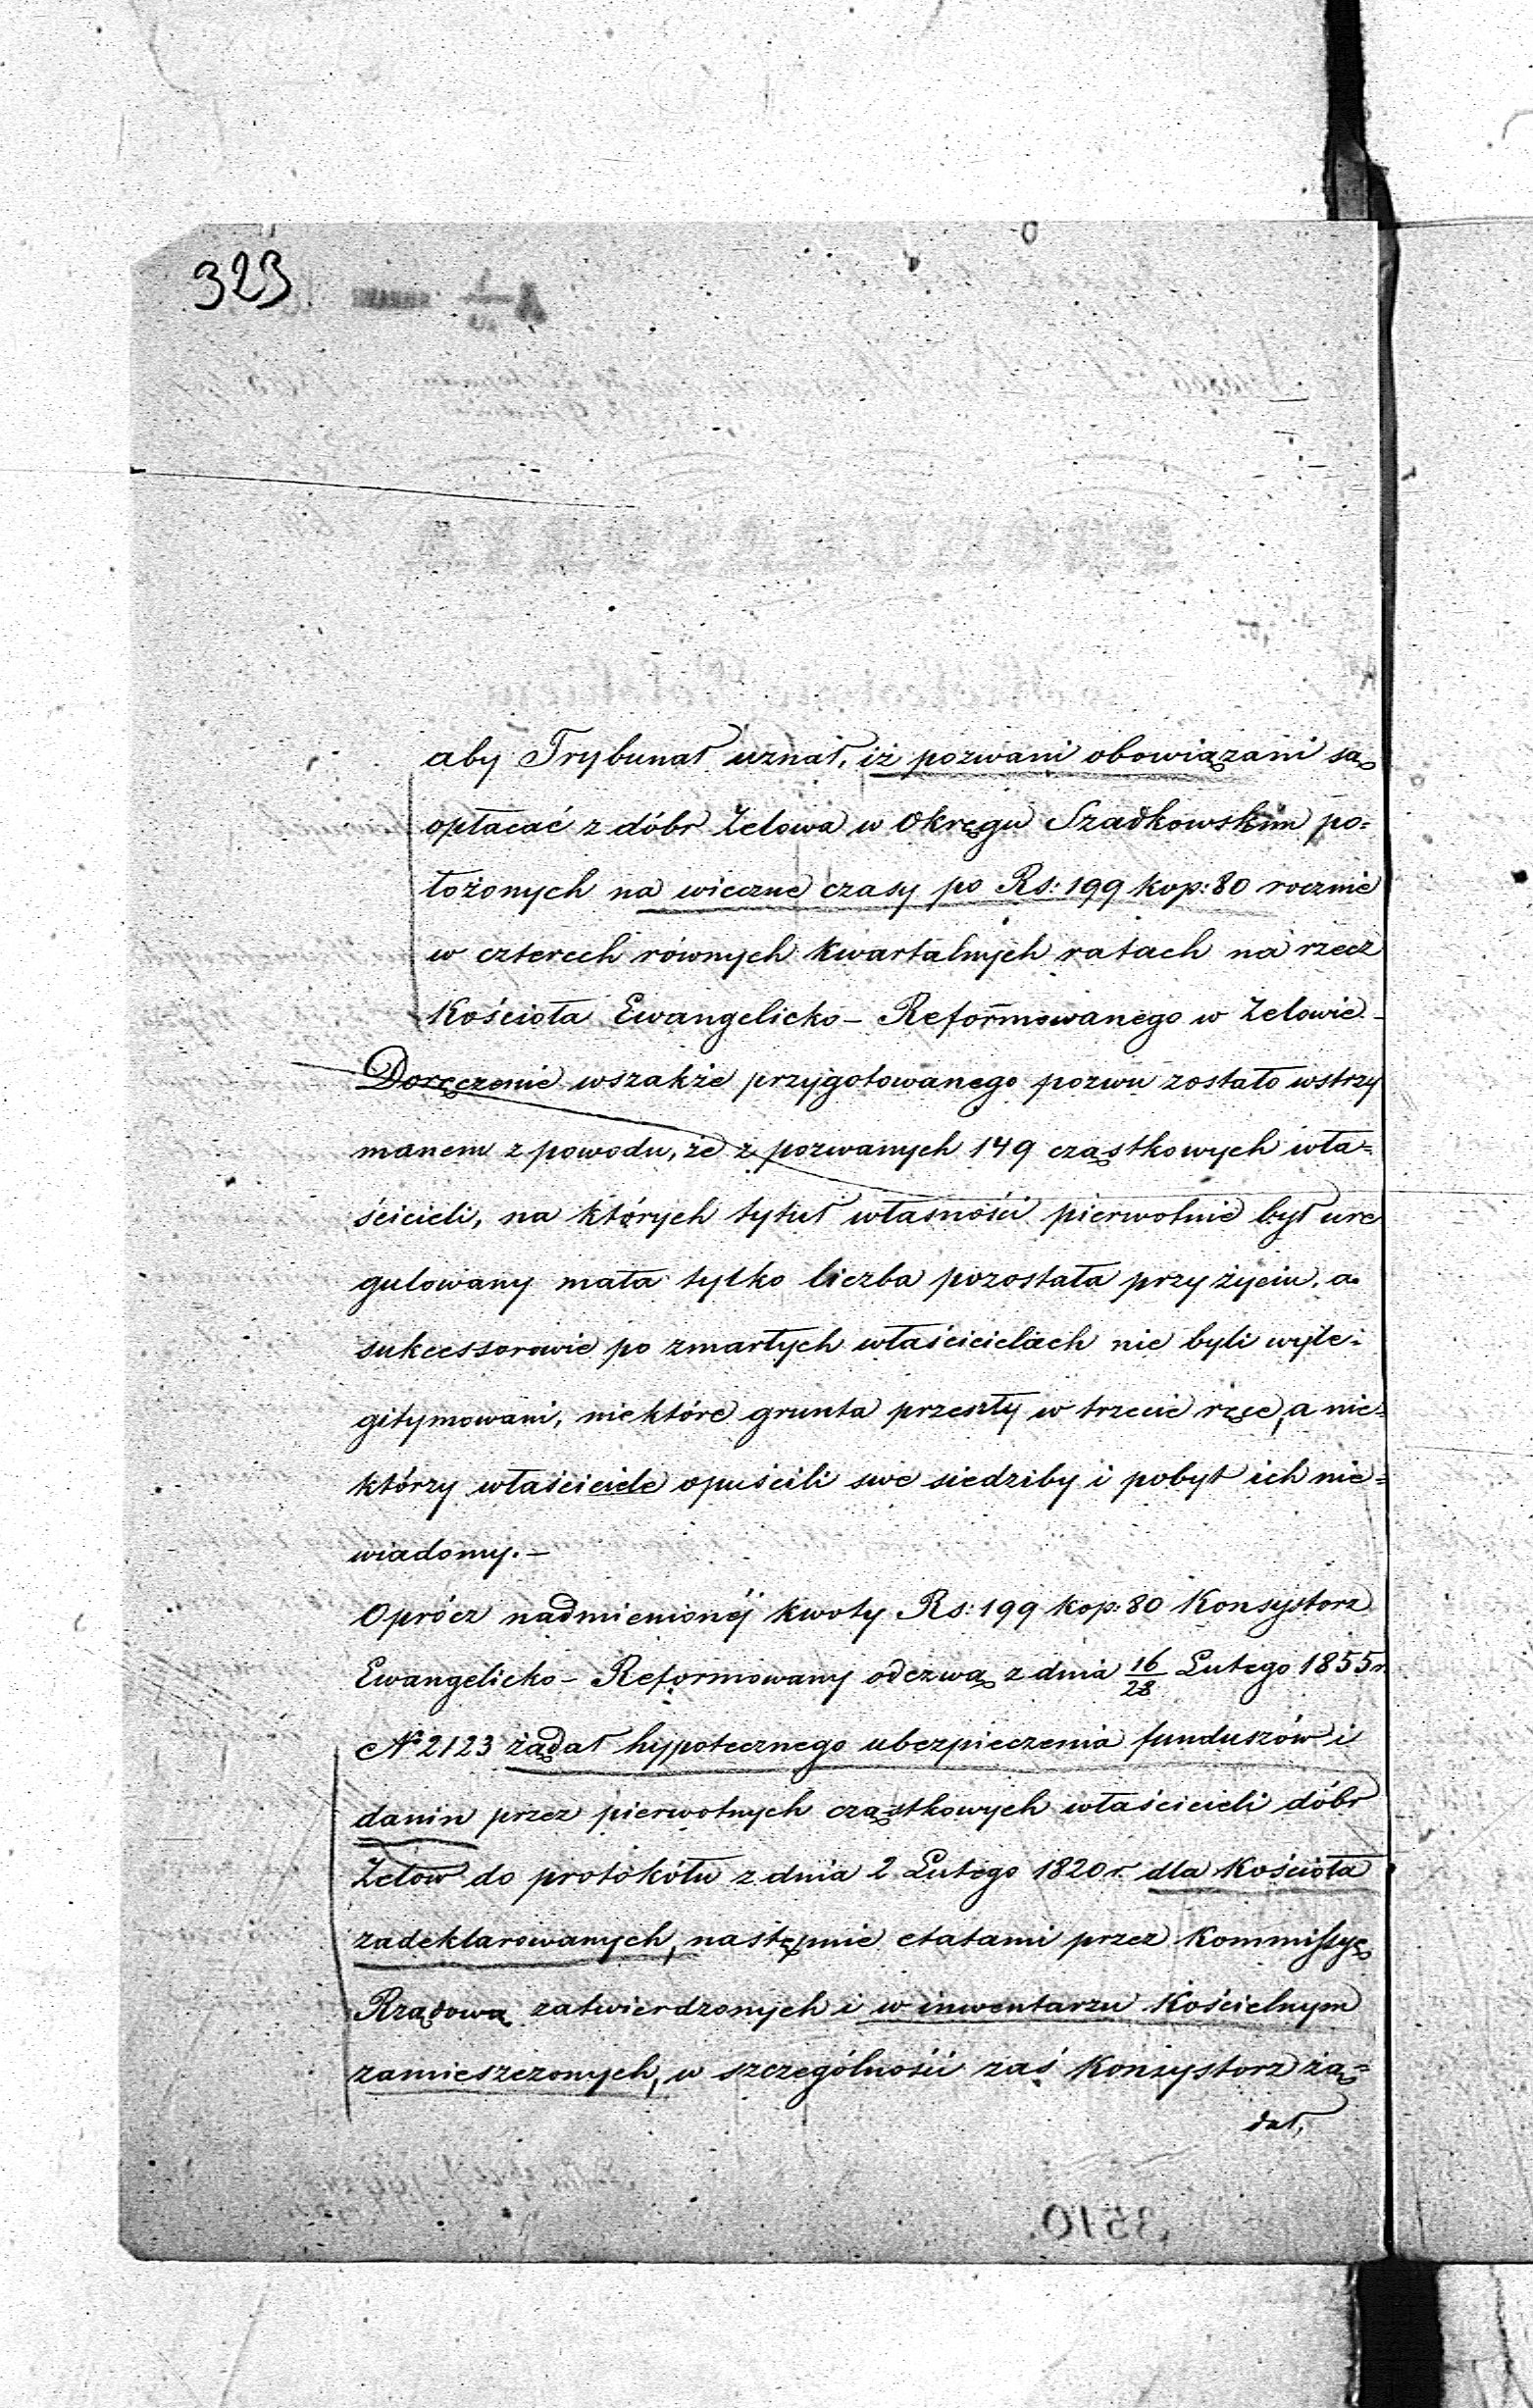 323
aby Trybunał uznał, iż pozwani obowiązani są
opłacać z dóbr Zelowa w Okręgu Szadkowskim po=
łożonych na wieczne czasy po Rs: 199 kop: 80 rocznie
w czterech równych kwartalnych ratach na rzecz
Kościoła Ewangelicko - Reformowanego w Zelowie -
Doręczenie wszakże przygotowanego pozwu zostało wstrzy
manem z powodu, że z pozwanych 149 cząstkowych wła=
ścicieli, na których tytuł własności pierwotnie był ure
gulowany mała tylko liczba pozostała przy życiu, a
sukcessorowie po zmarłych właścicielach nie byli wyle=
gitymowani, niektóre grunta przeszły w trzecie ręce, a nie=
którzy właściciele opuścili swe siedziby i pobyt ich nie=
wiadomy. -
Oprócz nadmienionéj kwoty Rs: 199 kop: 80 Konsystorz
Ewangelicko - Reformowany odezwą z dnia 16/28 Lutego 1855 r.
№ 2123 żądał hypotecznego ubezpieczenia funduszów i
danin przez pierwotnych cząstkowych właścicieli dóbr
Zelów do protokółu z dnia 2 Lutego 1820 r. dla Kościoła
zadeklarowanych, następnie etatami przez Kommissyę
Rządową zatwierdzonych i w inwentarzu Kościelnym
zamieszczonych, w szczególności zaś Konsystorz żą=
dał,
3510.